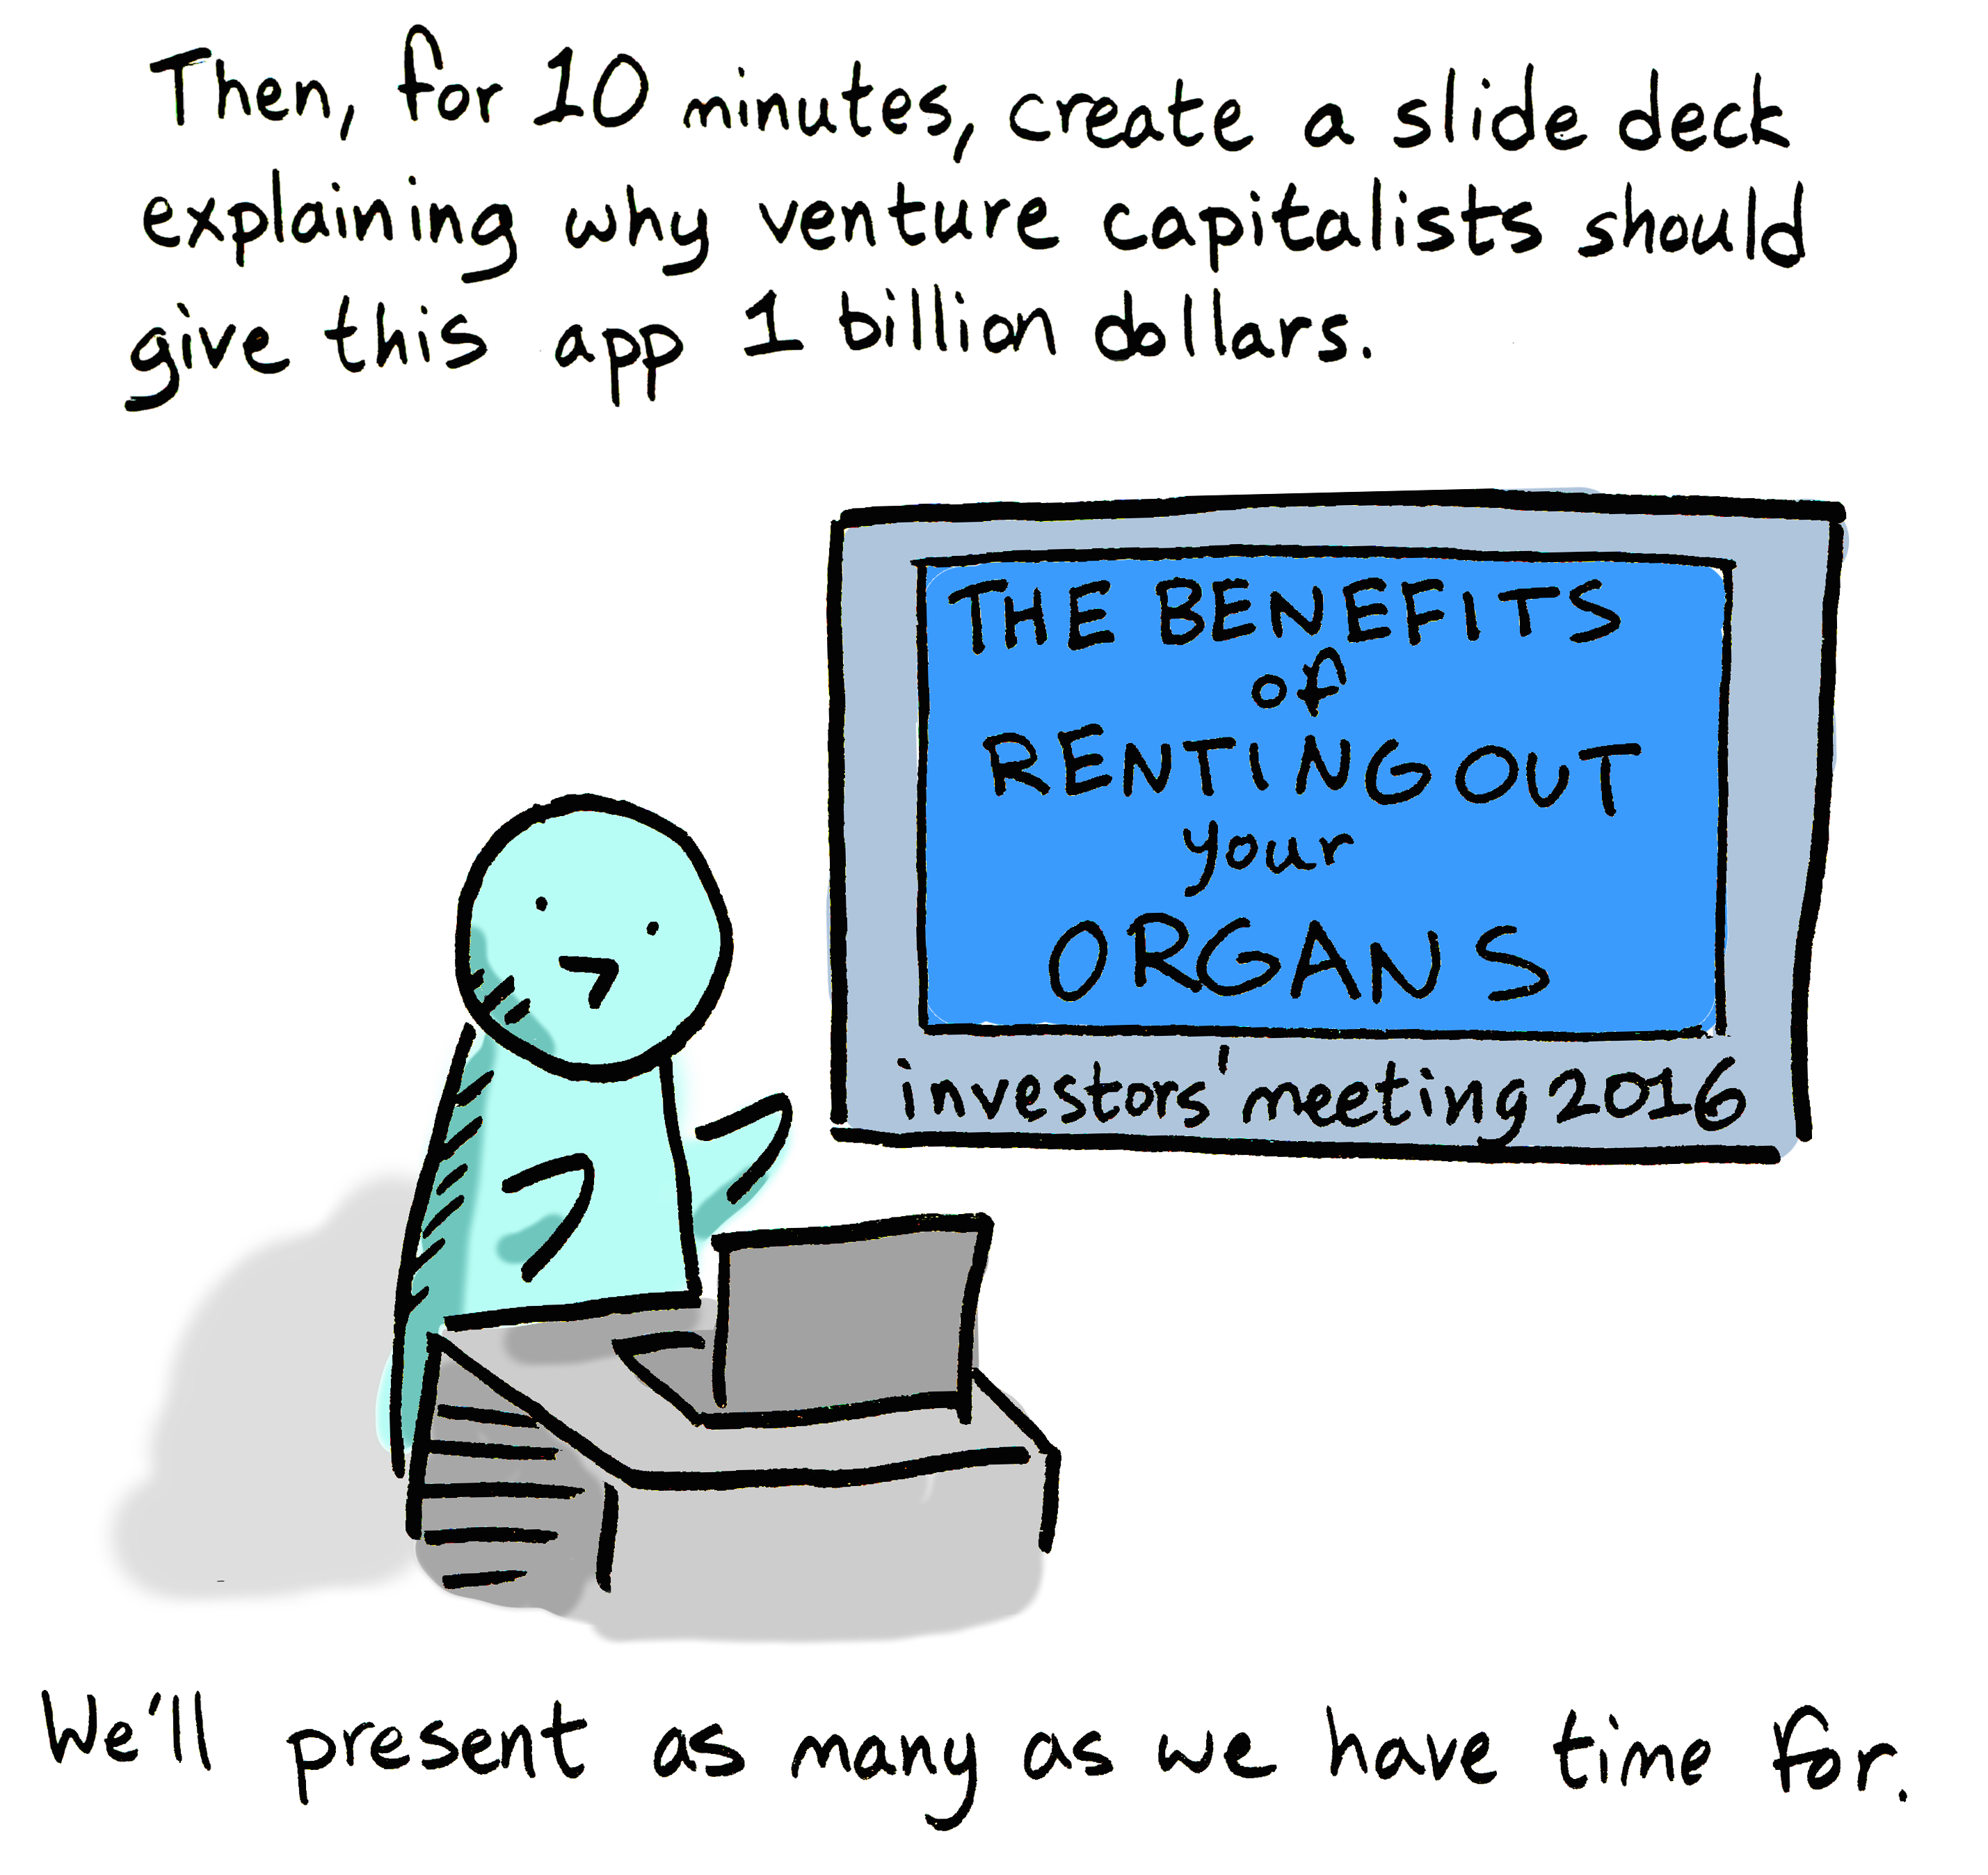 Then, for 10 minutes, create a slide deck
explaining why venture capitalists should
give this app 1 billion dollars.
THE BENEFITS
of
RENTING OUT
your
ORGANS
investors' meeting 2016
We'll present as many as we have time for.